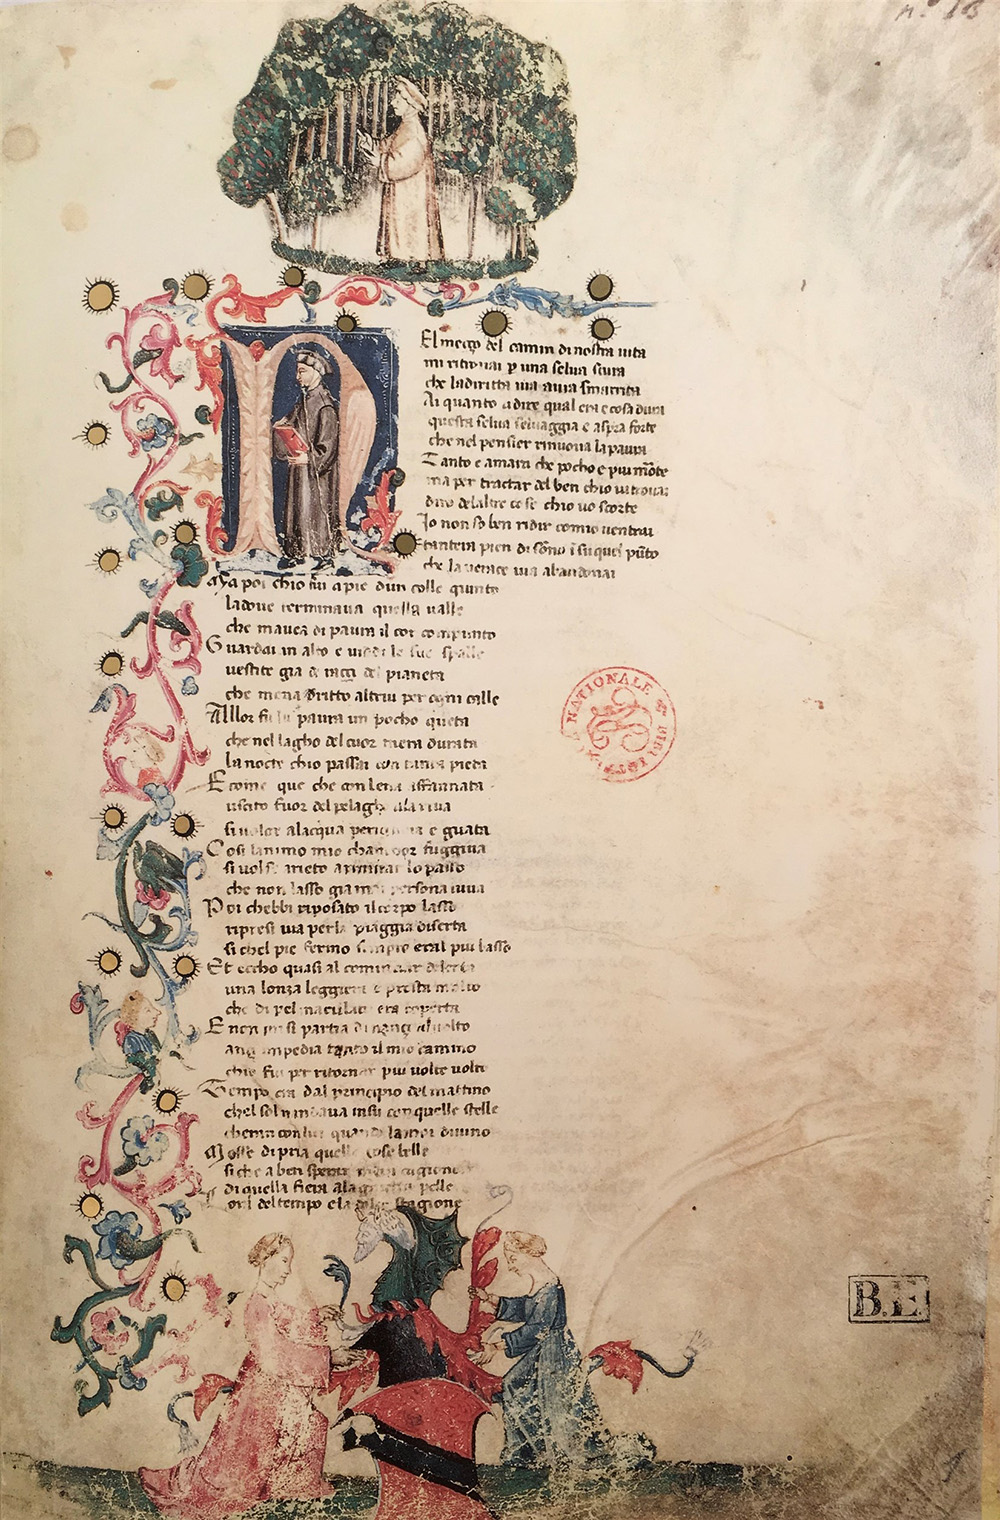 n.º 13
NEl mezzo del camin di nostra uita
mi ritrouai p una selua scura
che ladiritta uia auia smarrita
Ai quanto adire qual era e cosa dura
questa selua seluaggia e aspra forte
che nel pensier rinuoua la paura
Tanto e amara che pocho e piu morte
ma per tractar del ben chio ui trouai
diro delaltre cose chio uo scorte
Io non so ben ridir comio uentrai
tantera pien di sono i su quel puto
che la uerace uia abandonai
Ma poi chio fui apie dun colle giunto
ladoue terminaua quella ualle
che mauea di paura il cor compunto
Guardai in alto e uiddi le sue spalle
uestite gia de raggi del pianeta
che mena dritto altrui per ogni calle
Allor fu la paura un pocho queta
che nel lagho del cuor mera durata
la nocte chio passai con tanta pieta
E come que che con lena affannata
uscito fuor del pelagho ala riua
si uolge alacqua perigliosa e guata
Cosi lanimo mio chancor fuggiua
si uolse arieto arimirar lo passo
che non lasso gia mai persona uiua
Poi chebbi riposato il corpo lasso
ripresi uia per la piaggia diserta
si chel pie fermo sempre eral piu basso
Et eccho quasi al cominciar delerta
una lonza leggiera e presta molto
che di pel maculato era coperta
E non mi si partia dinanzi aluolto
anzi impedia tanto il mio camino
chio fui per ritornar piu uolte uolto
Tempo era dal principio del mattino
chel sol montaua insu con quelle stelle
cheran con lui quando lamor diuino
Mosse di pria quelle cose belle
si che a ben sperar mera cagione
di quella fiera ala gaetta pelle
ora del tempo e la dolce stagione
NATIONALE
B.E.